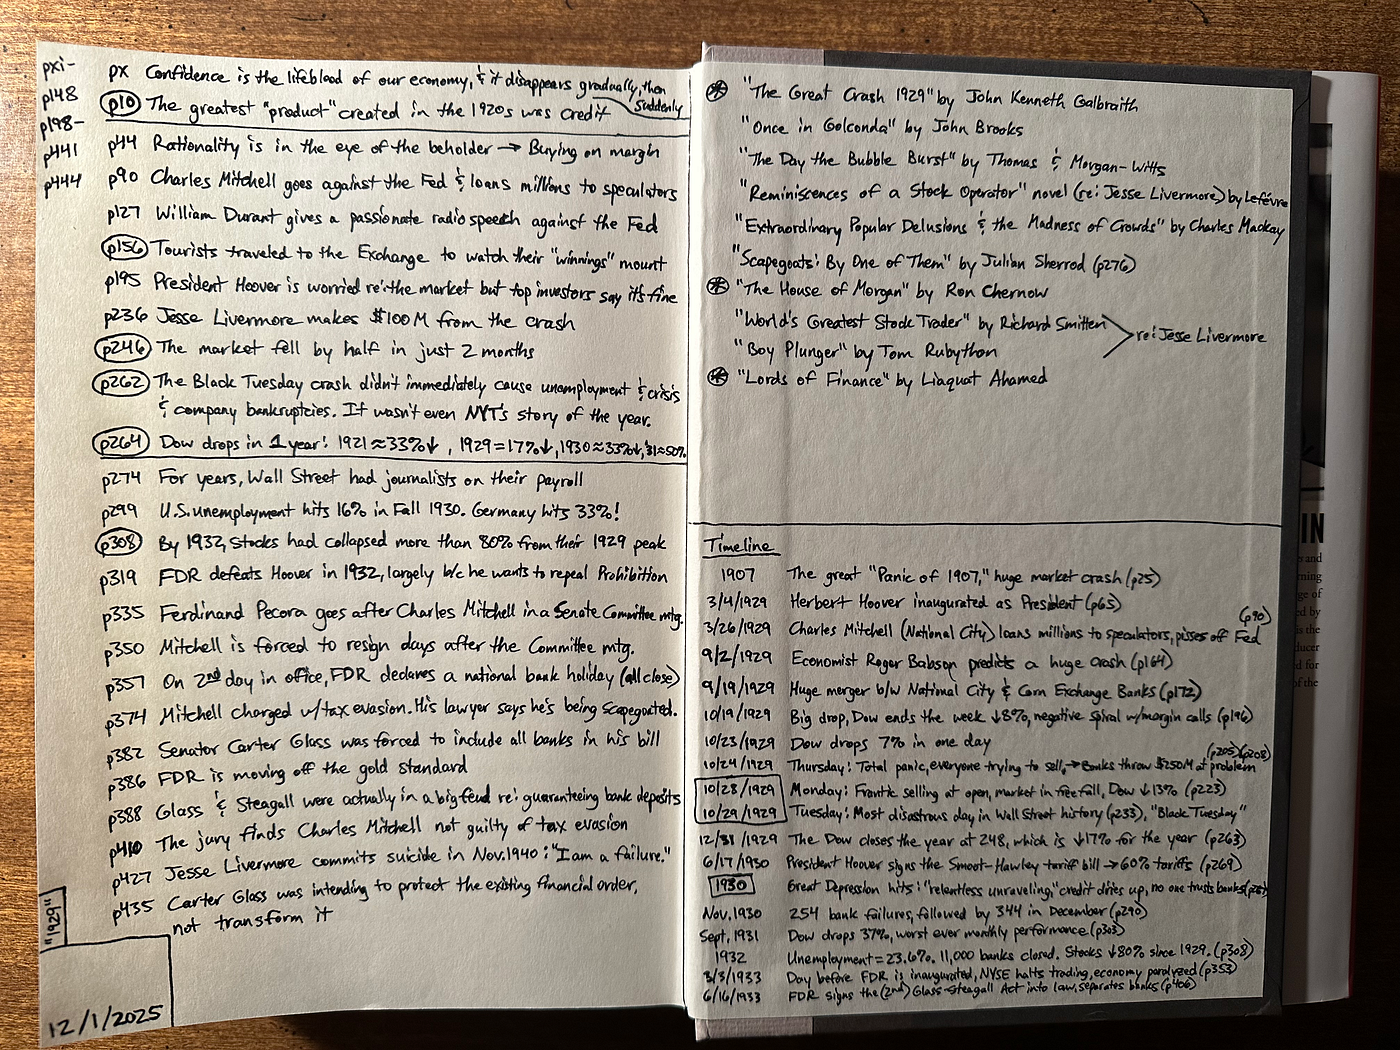 pxi-
p148
p198-
p441
p444
px Confidence is the lifeblood of our economy, & it disappears gradually, then
suddenly
p10 The greatest "product" created in the 1920s was credit
p44 Rationality is in the eye of the beholder → Buying on margin
p90 Charles Mitchell goes against the Fed & loans millions to speculators
p127 William Durant gives a passionate radio speech against the Fed
p156 Tourists traveled to the Exchange to watch their "winnings" mount
p195 President Hoover is worried re: the market but top investors say it's fine
p236 Jesse Livermore makes $100M from the crash
p246 The market fell by half in just 2 months
p262 The Black Tuesday crash didn't immediately cause unemployment & crisis
& company bankruptcies. It wasn't even NYT's story of the year.
p264 Dow drops in 1 year: 1921≈33%↓, 1929=17%↓, 1930≈33%↓, '31≈50%
p274 For years, Wall Street had journalists on their payroll
p299 U.S. unemployment hits 16% in Fall 1930. Germany hits 33%!
p308 By 1932, stocks had collapsed more than 80% from their 1929 peak
p319 FDR defeats Hoover in 1932, largely b/c he wants to repeal Prohibition
p335 Ferdinand Pecora goes after Charles Mitchell in a Senate Committee mtg.
p350 Mitchell is forced to resign days after the Committee mtg.
p357 On 2nd day in office, FDR declares a national bank holiday (all close)
p374 Mitchell charged w/tax evasion. His lawyer says he's being scapegoated.
p382 Senator Carter Glass was forced to include all banks in his bill
p386 FDR is moving off the gold standard
p388 Glass & Steagall were actually in a big feud re: guaranteeing bank deposits
p410 The jury finds Charles Mitchell not guilty of tax evasion
p427 Jesse Livermore commits suicide in Nov. 1940: "I am a failure."
p435 Carter Glass was intending to protect the existing financial order,
not transform it
"1929"
12/1/2025
"The Great Crash 1929" by John Kenneth Galbraith
"Once in Golconda" by John Brooks
"The Day the Bubble Burst" by Thomas & Morgan-Witts
"Reminiscences of a Stock Operator" novel (re: Jesse Livermore) by Lefévre
"Extraordinary Popular Delusions & the Madness of Crowds" by Charles Mackay
"Scapegoats: By One of Them" by Julian Sherrod (p276)
"The House of Morgan" by Ron Chernow
"World's Greatest Stock Trader" by Richard Smitten
re: Jesse Livermore
"Boy Plunger" by Tom Rubython
"Lords of Finance" by Liaquat Ahamed
Timeline
1907 The great "Panic of 1907," huge market crash (p25)
3/4/1929 Herbert Hoover inaugurated as President (p65)
3/26/1929 Charles Mitchell (National City) loans millions to speculators, pisses off Fed (p90)
9/2/1929 Economist Roger Babson predicts a huge crash (p164)
9/19/1929 Huge merger b/w National City & Corn Exchange Banks (p172)
10/19/1929 Big drop, Dow ends the week ↓8%, negative spiral w/margin calls (p196)
10/23/1929 Dow drops 7% in one day
10/24/1929 Thursday: Total panic, everyone trying to sell, → Banks throw $250M at problem (p205) (p208)
10/28/1929 Monday: Frantic selling at open, market in free fall, Dow ↓13% (p223)
10/29/1929 Tuesday: Most disastrous day in Wall Street history (p233), "Black Tuesday"
12/31/1929 The Dow closes the year at 248, which is ↓17% for the year (p263)
6/17/1930 President Hoover signs the Smoot-Hawley tariff bill → 60% tariffs (p269)
1930 Great Depression hits: "relentless unraveling," credit dries up, no one trusts banks
Nov. 1930 254 bank failures, followed by 344 in December (p290)
Sept. 1931 Dow drops 37%, worst ever monthly performance (p303)
1932 Unemployment = 23.6%. 11,000 banks closed. Stocks ↓80% since 1929. (p308)
3/3/1933 Day before FDR is inaugurated, NYSE halts trading, economy paralyzed (p353)
6/16/1933 FDR signs the (2nd) Glass-Steagall Act into law, separates banks (p406)
IN